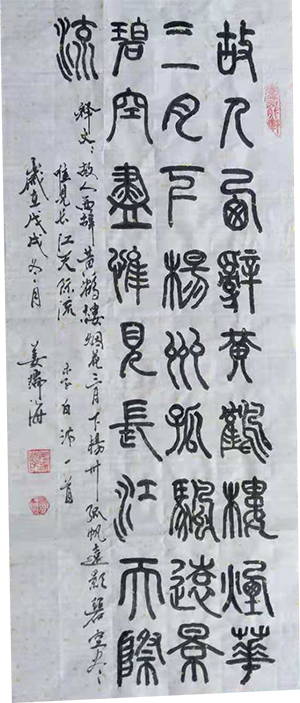 故人西辭黃鶴樓煙華
三月下楊州孤颿遠景
碧空盡惟見長江天際
流
释文：故人西辞黄鹤楼烟花三月下揚州孤帆遠影碧空尽
惟見长江天际流 李白诗一首
歲在戊戌冬月 姜瑞海